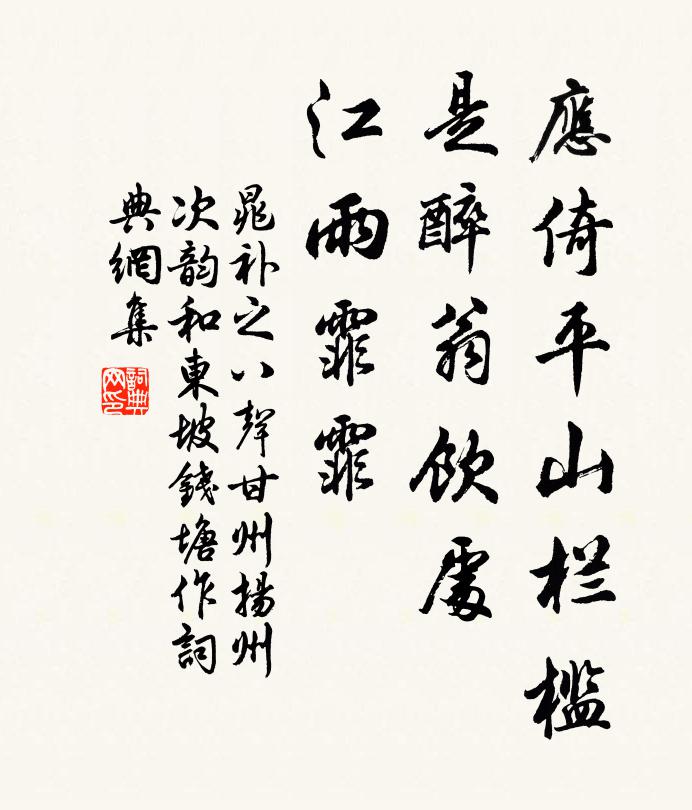 應倚平山栏檻
是醉翁飲處
江雨霏霏
晁补之八聲甘州揚州
次韵和東坡錢塘作詞
典網集
詞典
网印